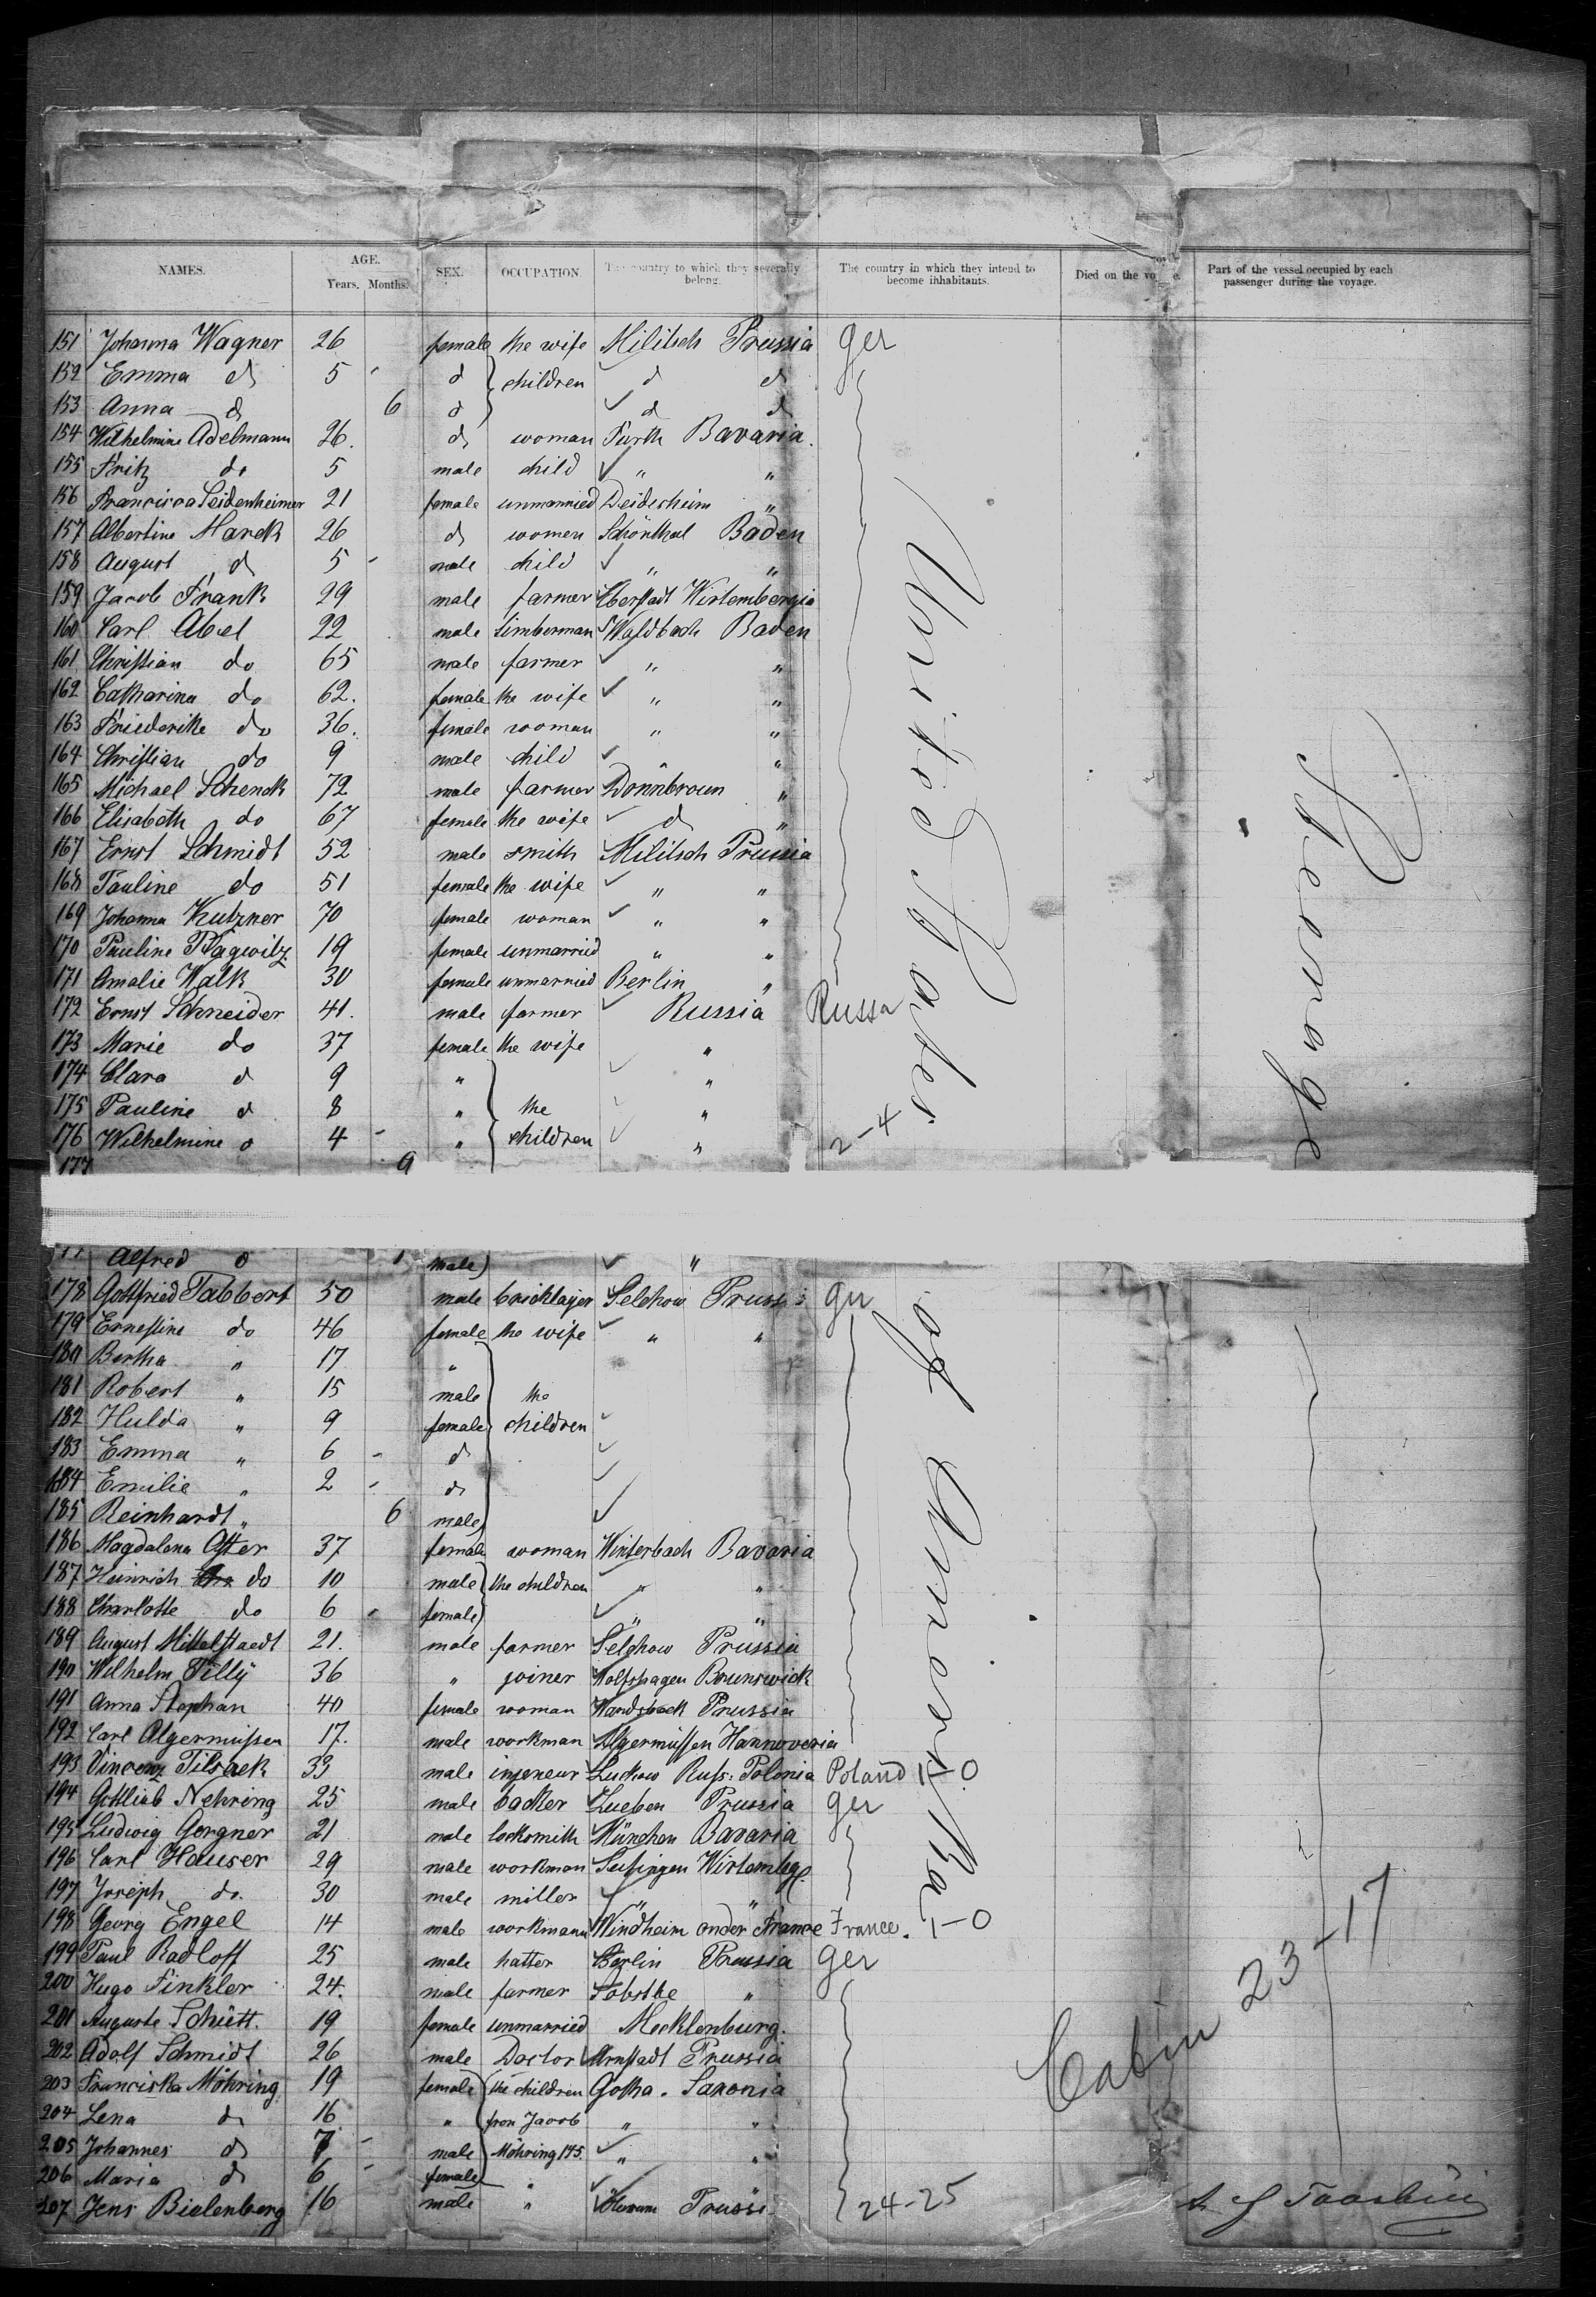 NAMES. AGE. Years. Months. SEX. OCCUPATION. The country to which they severally belong. The country in which they intend to become inhabitants. Died on the voyage. Part of the vessel occupied by each passenger during the voyage.
151 Johanna Wagner 26 female the wife Militsch Prussia ger
152 Emma d 5 - d children d d
153 Anna d 6 d d d
154 Wilhelmine Adelmann 26. d woman Fürth Bavaria.
155 Fritz do 5 male child " "
156 Francisca Seidenheimer 21 female unmarried Deidesheim "
157 Albertine Marck 26 d women Schönthal Baden
158 August d 5 - male child " "
159 Jacob Frank 29 male farmer Eberstadt Wirtembergia
160 Carl Abel 22 male timberman Waldbach Baden
161 Christian do 65 male farmer " "
162 Catharina do 62. female the wife " "
163 Friederike do 36. female woman " "
164 Christian do 9 male child " "
165 Michael Schenck 72 male farmer Donnbronn "
166 Elisabeth do 67 female the wife d "
167 Ernst Schmidt 52 male smith Militsch Prussia
168 Pauline do 51 female the wife " "
169 Johanna Kutzner 70 female woman " "
170 Pauline Plagwitz 19 female unmarried " "
171 Amalie Walk 30 female unmarried Berlin "
172 Ernst Schneider 41. male farmer Russia Russa
173 Marie do 37 female the wife "
174 Clara d 9 " "
175 Pauline d 8 " the "
176 Wilhelmine d 4 - " children " 2-4
177 9
Alfred d male "
178 Gottfried Tabbert 50 male bricklayer Selchow Prussi ger
179 Ernestine do 46 female the wife " "
180 Bertha " 17 "
181 Robert " 15 male the
182 Hulda " 9 female children
183 Emma " 6 - d
184 Emilie " 2 - d
185 Reinhardt " 6 male
186 Magdalena After 37 female woman Winterbach Bavaria
187 Heinrich do 10 male the children " "
188 Charlotte do 6 - female " "
189 August Mittelstaedt 21. male farmer Selchow Prussia
190 Wilhelm Tilly 36 " joiner Wolfshagen Brunswick
191 Anna Stephan 40 female woman Wandsbeck Prussia
192 Carl Algermissen 17. male workman Algermissen Hannoveria
193 Vincenz 33 male ingeneur Luckow Russ. Polonia Poland 1-0
194 Gottlieb Nehring 25 male backer Lueben Prussia ger
195 Ludwig Gorgner 21 male locksmith München Bavaria
196 Carl Hauser 29 male workman Wirtembg.
197 Joseph do. 30 male miller " "
198 Georg Engel 14 male workmann Windheim onder France France. 1-0
199 Paul Radloff 25 male hatter Berlin Prussia ger
200 Hugo Finkler 24. male farmer "
201 Auguste Schütt. 19 female unmarried Mecklenburg.
202 Adolf Schmidt 26 male Doctor Arnstadt Prussia
203 Franciska Möhring 19 female the children Gotha. Saxonia
204 Lena d 16 " from Jacob " "
205 Johannes d 7 - male Möhring 145. " "
206 Maria d 6 - female "
207 Jens Bielenberg 16 male " Prussi 24-25
United States
of America
Steerage
23-17
Cabin